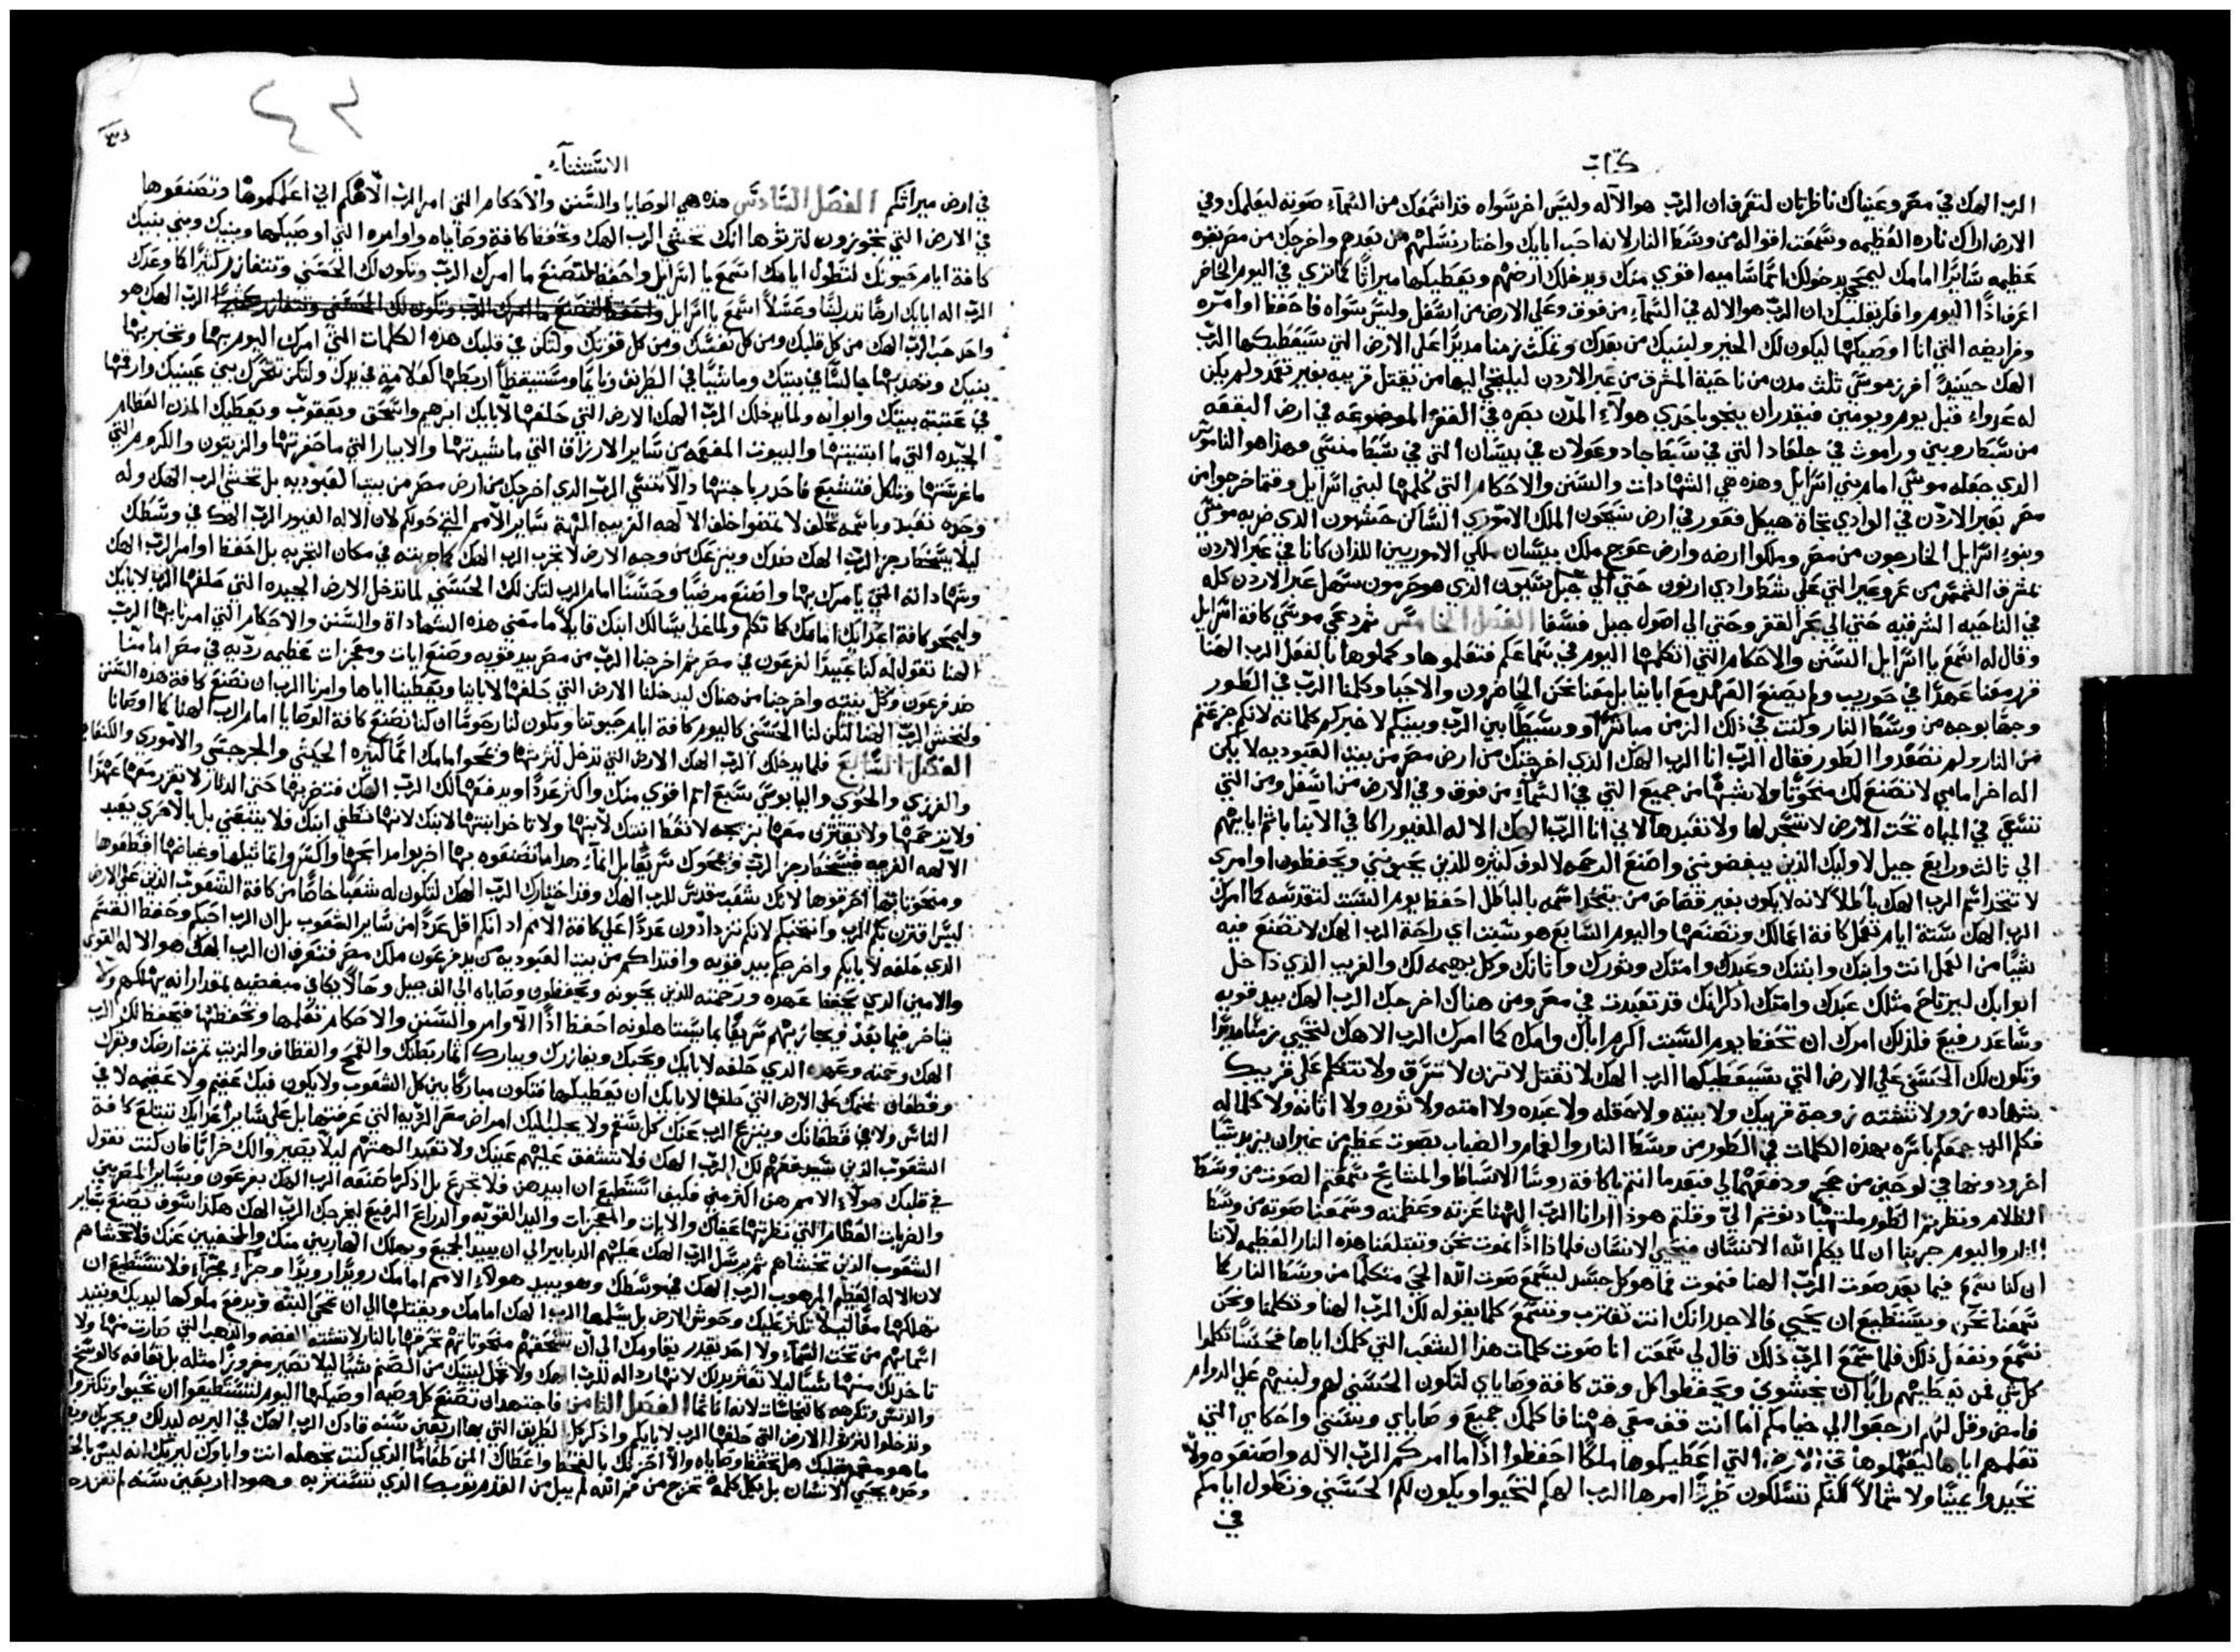 كتاب
الرب الهك في مصر وعيناك ناظرتان لتعرف ان الرب هو الاله وليس اخر سواه قد اسمعك من السماء صوته ليعلمك وفي
الارض اراك ناره العظيمه وسمعت اقواله من وسط النار لانه احب ابايك واختار نسلهم من بعدهم واخرجك من مصر بقوه
عظيمه سايرًا امامك ليمحي بدخولك اممًا ساميه اقوي منك ويدخلك ارضهم ويعطيكها ميراثًا كما تري في اليوم الحاضر
اعرف اذًا اليوم وافكر بقلبك ان الرب هو الاله في السماء من فوق وعلي الارض من اسفل وليس سواه فاحفظ اوامره
وفرايضه التي انا اوصيكها ليكون لك الخير ولبنيك من بعدك وتمكث زمنا مديدًا علي الارض التي سيعطيكها الرب
الهك حينيذٍ افرز موسي ثلث مدن من ناحية المشرق من عبر الاردن ليلتجي اليها من يقتل قريبه بغير تعمد ولم يكن
له عدواء قبل يوم ويومين فيقدر ان ينجو باحدي هولاء المدن بصره في القفر الموضوعه في ارض البقعه
من سبط روبين وراموث في جلعاد التي في سبط جاد وعولان في بيسان التي في سبط منسي وهذا هو الناموس
الذي جعله موسي امام بني اسرايل وهذه هي الشهادات والسنن والاحكام التي كلمها لبني اسرايل وقتما خرجوا من
مصر بعبر الاردن في الوادي تجاة هيكل فغور في ارض سيحون الملك الاموري الساكن حشبون الذي ضربه موسي
وبنو اسرايل الخارجون من مصر وملكوا ارضه وارض عوج ملك بيسان ملكي الاموريين اللذان كانا في عبر الاردن
بمشرف الشمس من عروعير التي علي شط وادي ارنون حتي الي جبل سيون الذي هو حرمون سهل عبر الاردن كله
في الناحيه الشرقيه حتي الي بحر القفر وحتي الي اصول جبل فسقا الفصل الخامس ثم دعي موسي كافة اسرايل
وقال له اسمع يا اسرايل السنن والاحكام التي اتكلمها اليوم في سماعكم فتعلموها وكملوها بالفعل الرب الهنا
قرر معنا عهدًا في حوريب ولم يصنع العهد مع ابايينا بل معنا نحن الحاضرون والاحيا وكلمنا الرب في الطور
وجهًا بوجه من وسط النار وكنت في ذلك الزمن مباشرًا ووسيطًا بين الرب وبينكم لاخبركم كلماته لانكم جزعتم
من النار ولم تصعدوا الطور فقال الرب انا الرب الهك الذي اخرجتك من ارض مصر من بيت العبوديه لا يكن
اله اخر امامي لا تصنع لك منحوتًا ولا شبهًا من جميع التي في السماء من فوق وفي الارض من اسفل ومن التي
تسعي في المياه تحت الارض لا تسجد لها ولا تعبدها لاني انا الرب الهك الاله الغيور اكافي الابنا باثم ابايهم
الي ثالث ورابع جيل لاوليك الذين يبغضونني واصنع الرحمه لالوف كثيره للذين يحبونني ويحفظون اوامري
لا تتخذ اسم الرب الهك باطلاً لانه لا يكون بغير قصاص من يتخذ اسمه بالباطل احفظ يوم السبت لتقدسه كما امرك
الرب الهك ستة ايام تعمل كافة اعمالك وتصنعها واليوم السابع هو سبت اي راحة الرب الهك لا تصنع فيه
شيًا من العمل انت وابنك وابنتك وعبدك وامتك وثورك واتانك وكل بهيمه لك والغريب الذي داخل
ابوابك ليرتاح مثلك عبدك وامتك اذكر انك قد تعبدت في مصر ومن هناك اخرجك الرب الهك بيدٍ قويه
وساعد رفيع فلذلك امرك ان تحفظ يوم السبت اكرم اباك وامك كما امرك الرب الاهك لتحيي زمنًا مديدًا
وتكون لك الحسني علي الارض التي سيعطيكها الرب الهك لا تقتل لا تزن لا تسرق ولا تتكلم علي قريبك
بشهاده زور ولا تشته زوجة قريبك ولا بيته ولا حقله ولا عبده ولا امته ولا ثوره ولا اتانه ولا كلما له
فكلم الرب جمعكم باسره بهذه الكلمات في الطور من وسط النار والغمام والضباب بصوت عظيم من غير ان يزيد شيًا
اخر ودونها في لوحين من حجر ودفعهما لي فبعدما انتم يا كافة روسا الاسباط والمشايخ سمعتم الصوت من وسط
الظلام ونظرتم الطور ملتهبًا دنوتم الي وقلتم هوذا ارانا الرب الهنا عزته وعظمته وسمعنا صوته من وسط
النار واليوم جربنا ان لما يكلم الله الانسان فيحيي الانسان فلماذا اذًا نموت نحن وتبتلعنا هذه النار العظيمه لاننا
ان كنا نسمع فيما بعد صوت الرب الهنا فنموت فما هو كل جسد ليسمع صوت الله الحي متكلمًا من وسط النار كما
سمعنا نحن ويستطيع ان يحيي فالاجدر انك انت تقترب وتسمع كلما يقوله لك الرب الهنا وتكلمنا ونحن
نسمع ونفعل ذلك فلما سمع الرب ذلك قال لي سمعت انا صوت كلمات هذا الشعب التي كلمك اياها فحسنًا تكلموا
كل شي فمن يعطيهم رايًا ان يخشوني ويحفظوا كل وقت كافة وصاياي لتكون الحسني لهم ولبنيهم علي الدوام
فامض وقل لهم ارجعوا الي خيامكم اما انت قف معي ههنا فاكلمك جميع وصاياي وسنني واحكامي التي
تعلمهم اياها ليعملوها في الارض التي اعطيكموها ملكًا احفظوا اذًا ما امركم الرب الاله واصنعوه ولا
تحيدوا يمينًا ولا شمالاً لكنكم تسلكون طرقًا امر بها الرب الهكم لتحيوا ويكون لكم الحسني وتطول ايامكم
في
٤٢
الاستثناء
في ارض ميراثكم الفصل السادس هذه هي الوصايا والسنن والاحكام التي امر الرب الاهكم اني اعلمكموها وتصنعوها
في الارض التي تجوزون لترثوها انك تخشي الرب الهك وتحفظ كافة وصاياه واوامره التي اوصيكها وبنيك وبني بنيك
كافة ايام حيوتك لتطول ايامك اسمع يا اسرايل واحفظ لتصنع ما امرك الرب وتكون لك الحسني وتتغازر كثيرًا كما وعدك
الرب اله ابايك ارضًا تدر لبنًا وعسلاً اسمع يا اسرايل واحفظ لتصنع ما امرك الرب وتكون لك الحسني وتتغازر كثيرًا الرب الهك هو
واحد حب الرب الهك من كل قلبك ومن كل نفسك ومن كل قوتك ولتكن في قلبك هذه الكلمات التي امرك اليوم بها وتخبر بها
بنيك وتهذ بها جالسًا في بيتك وماشيًا في الطريق ونايمًا ومستيقظًا اربطها كعلامةٍ في يدك ولتكن تتحرك بين عينيك وارقمها
في عتبة بيتك وابوابه ولما يدخلك الرب الهك الارض التي حلف بها لابايك ابرهيم واسحق ويعقوب ويعطيك المدن العظام
الجيده التي ما ابتنيتها والبيوت المفعمه من ساير الارزاق التي ما شيدتها والابيار التي ما حفرتها والزيتون والكروم التي
ما غرستها وتاكل فتشبع فاحدر باجتها دالا تنسي الرب الذي اخرجك من ارض مصر من بيت العبوديه بل تخشي الرب الهك وله
وحده تعبد وباسمه تحلف لا تمضوا خلف الالهه الغريبه الهة ساير الامم التي حولكم لان الاله الغيور الرب الهك في وسطك
ليلا يستحط رجز الرب الهك ضدك وينزعك من وجه الارض لا تجرب الرب الهك كما جربته في مكان التجربه بل احفظ اوامر الرب الهك
وشهاداته التي يامرك بها واصنع مرضيًا وحسنًا امام الرب لتكن لك الحسني لما تدخل الارض الجيده التي حلف بها الرب لابايك
وليمحو كافة اعدايك امامك كما تكلم ولما غدًا يسالك ابنك قايلاً ما معني هذه الشهاداة والسنن والاحكام التي امرنا بها الرب
الهنا تقول له كنا عبيدًا لفرعون في مصر ثم اخرجنا الرب من مصر بيدٍ قويه وصنع ايات ومعجزات عظيمه رديه في مصر امامنا
ضد فرعون وكل بيته واخرجنا من هناك ليدخلنا الارض التي حلف بها لاباينا ويعطينا اياها وامرنا الرب ان نصنع كافة هذه السنن
ولنخشي الرب الهنا لتكن لنا الحسني كاليوم كافة ايام حيوتنا ويكون لنا رحومًا ان كنا نصنع كافة الوصايا امام الرب الهنا كما اوصانا
الفصل السابع فلما يدخلك الرب الهك الارض التي تدخل لترثها وتمحو امامك اممًا كثيره الحيثي والجرجسي والاموري والكنعاني
والفرزي والحوي واليابوسي سبع امم اقوي منك واكثر عددًا ويدفعها لك الرب الهك فتضربها حتي الدثار لا تقرر معها عهدًا
ولا ترحمها ولا تقترن معها بزيجه لا تعط ابنتك لابنها ولا تاخذ ابنتها لابنك لانها تطغي ابنك فلا يتبعني بل بالاحري يعبد
الالهه الغريبه فيستحط رجز الرب ويمحوك سريعًا بل انما هذا ما تصنعوه بها اخربوا مذابحها واكسروا تماثيلها وغياضها اقطعوها
ومنحوتاتها احرقوها لانك شعب مقدس للرب الهك وقد اختارك الرب الهك لتكون له شعبًا خاصًا من كافة الشعوب الذين علي الارض
ليس اقترن بكم الرب وانتخبكم لانكم تزدادون عددًا علي كافة الامم اذ انكم اقل عددًا من ساير الشعوب بل ان الرب احبكم وحفظ القسم
الذي حلفه لابايكم واخرجكم بيدٍ قويه وافتداكم من بيت العبوديه من يد فرعون ملك مصر فتعرف ان الرب الهك هو الاله القوي
والامين الذي يحفظ عهده ورحمته للذين يحبونه ويحفظون وصاياه الي الف جيل وحالاً يكافي مبغضيه بمقدار انه يهلكهم ولا
يتاخر فيما بعد ويجازيهم سريعًا بما يستاهلونه احفظ اذًا الاوامر والسنن والاحكام تعلمها وتحفظها فيحفظ لك الرب
الهك رحمته وعهده الذي حلفه لابايك ويحبك ويغازرك ويبارك اثمار بطنك والقمح والقطاف والزيت ثمرة ارضك وبقرك
وقطعان غنمك علي الارض التي حلف بها لابايك ان يعطيكها فتكون مباركًا بين كل الشعوب ولا يكون فيك عقيم ولا عقيمه لا في
الناس ولا في قطعانك وينزع الرب عنك كل سقم ولا يجلب اليك امراض مصر الرديه التي عرفتها بل علي ساير اعدايك تبتلع كافة
الشعوب الذين سيدفعهم لك الرب الهك فلا تشفق عليهم عينك ولا تعبد الهتهم ليلا يصيروا لك خرابًا فان كنت تقول
في قلبك هولاء الامم هن اكثر مني فكيف استطيع ان ابيدهن فلا تجزع بل اذكر ما صنعه الرب الهك بفرعون وساير المصريين
والضربات العظام التي نظرتها عيناك والايات والمعجزات واليد القويه والذراع الرفيع ليخرجك الرب الهك هكذا سوف يصنع بساير
الشعوب الذين تخشاهم ثم يرسل الرب الهك عليهم الدبابير الي ان يبيد الجميع ويهلك الهاربين منك والمخفيين عنك فلا تخشاهم
لان الاله العظيم المرهوب الرب الهك في وسطك وهو يبيد هولاء الامم امامك رويدًا رويدًا وجزاء فجزاء فلا تستطيع ان
تهلكها معًا ليلا تكثر عليك وحوش الارض بل يسلمها الرب الهك امامك ويقتلها الي ان تمحي البته ويدفع ملوكها ليديك وتبيد
اسماءهم من تحت السماء ولا احد يقدر يقاومك الي ان تسحقهم منحوتاتهم تحرقها بالنار لا تشته الفضه والذهب التي صارت منها ولا
تاخذ لك منها شيًا ليلا تعثر بذلك لانها رداله للرب الهك ولا تدخل لبيتك من الصنم شيًا ليلا تصير مفروزًا مثله بل تعافه كالوسخ
والدنس وتكرهه كالنجاسات لانه اناثما الفصل الثامن فاجتهد ان تصنع كل وصيه اوصيكها اليوم لتستطيعوا ان تحيوا وتكثروا
وتدخلوا لترثوا الارض التي حلف بها الرب لابايكم واذكر كل الطريق التي بها اربعين سنه قادك الرب الهك في البريه ليذلك ويجربك
ما هو مضمر بقلبك هل تحفظ وصاياه والا احزنك بالقحط واعطاك المن طعامًا الذي كنت تجهله انت واباوك ليريك انه ليس بالخبز
وحده يحيي الانسان بل بكل كلمة تخرج من فم الله لم يبل من القدم ثوبك الذي تستتر به وهوذا اربعين سنه